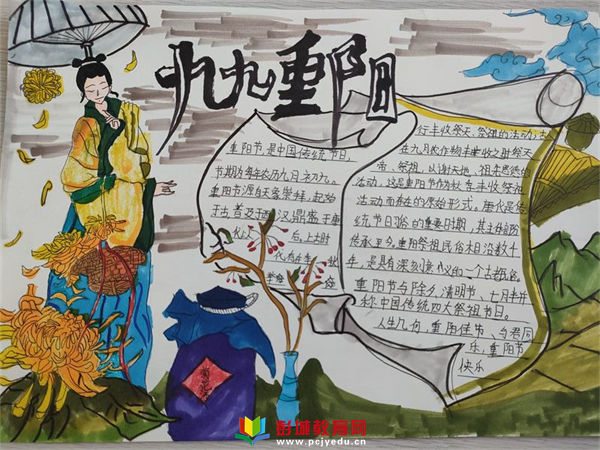 九九重阳
重阳节是中国传统节日
节期为每年农历九月初九。
重阳节源自天象崇拜，起始
于上
行丰收祭天、祭祖的活动
在九月农作物丰收之时祭天
帝、祭祖，以谢天地、祖先恩德的
活动，这是重阳节作为秋季丰收祭祀
活动而存在的原始形式。唐代是传
统节日
传承至今。重阳祭祖民俗相沿数千
年，是具有深刻意义的一个古
重阳节与除夕、清明节、七月半并
称中国传统四大祭祖节日。
人生几何，重阳佳节，与君同
乐，重阳节
快乐
彭城教育网
www.pcjyedu.cn